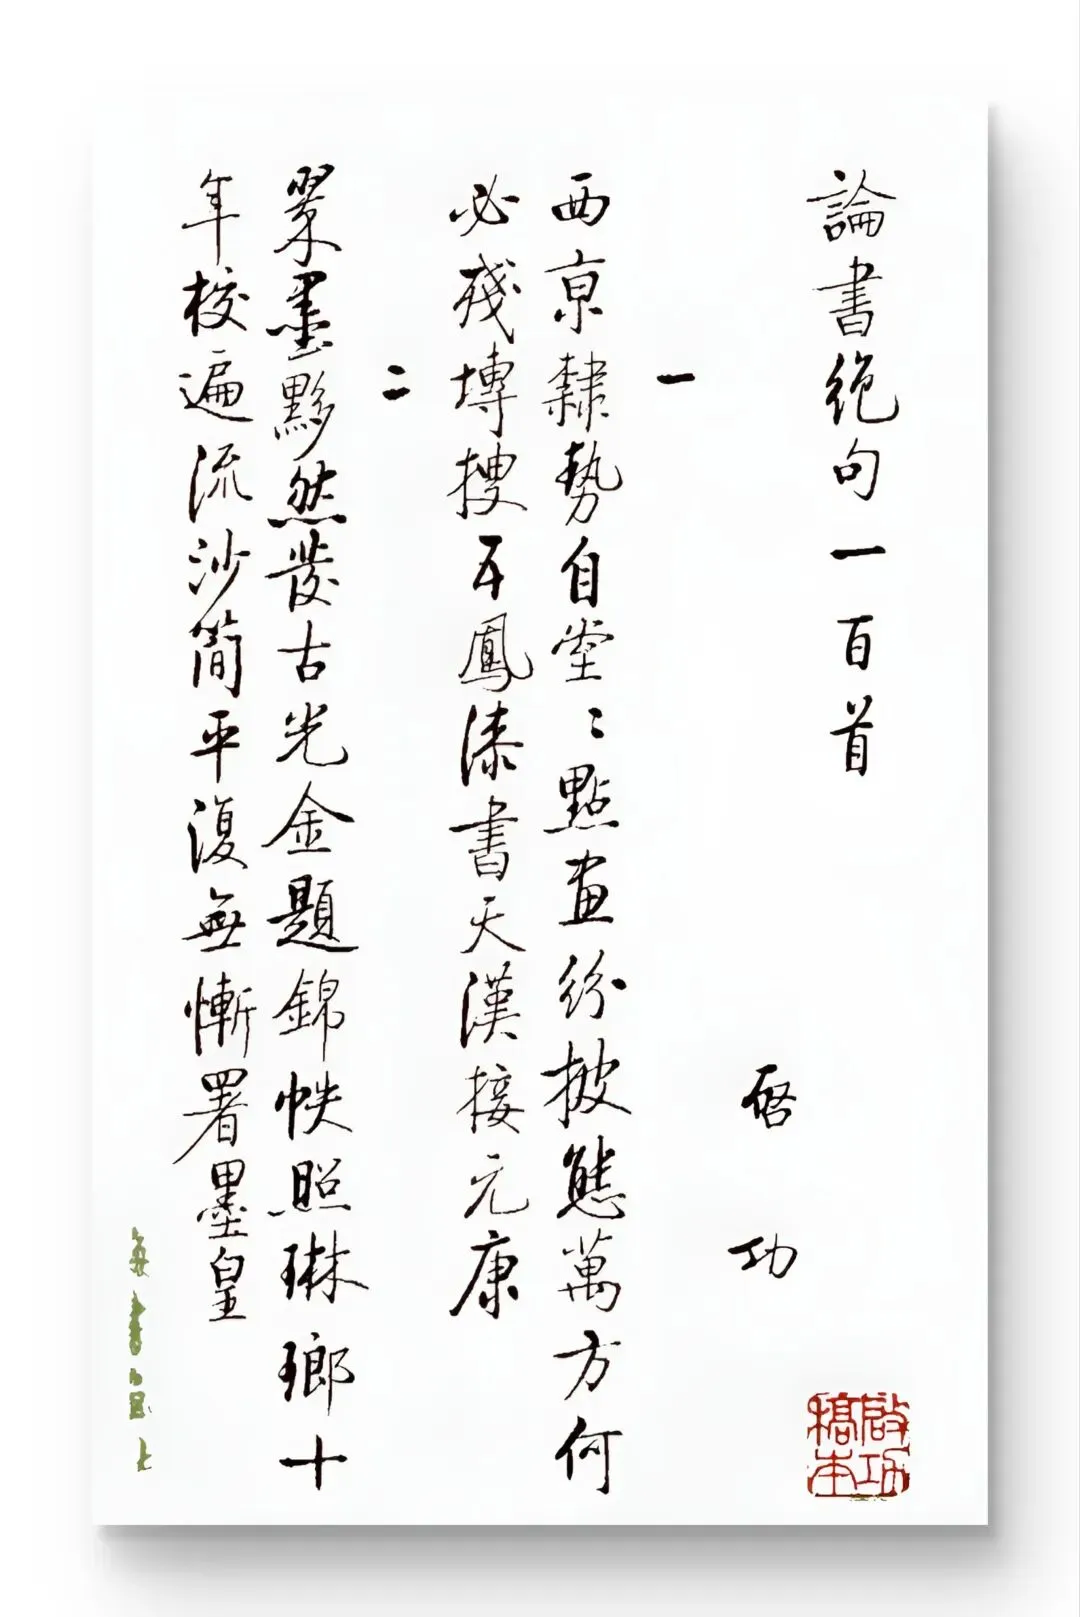 論書絶句一百首
启功
啟功
稿本
一
西京隸勢自堂〻點畫紛披態萬方何
必殘塼搜五鳳漆書天漢接元康
二
翠墨黟然發古光金題錦帙照琳瑯十
年校遍流沙簡平復無慚署墨皇